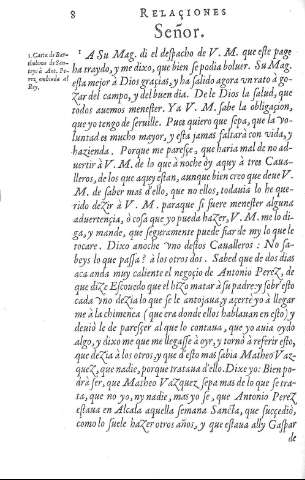 8 RELAÇIONES
Señor.
1. Carta de Bar-
tholome de San-
toyo à Ant. Pe-
rez, embiada al
Rey.
1 A Su Mag. di el despacho de V. M. que este page
ha traydo, y me dixo, que bien se podia boluer. Su Mag.
esta mejor à Dios graçias, y ha salido agora vn rato à go-
zar del campo, y del buen dia. De le Dios la salud, que
todos auemos menester. Ya V. M. sabe la obligaçion,
que yo tengo de seruille. Pues quiero que sepa, que la vo-
luntad es mucho mayor, y esta jamas faltarà con vida, y
hazienda. Porque me paresçe, que haria mal de no ad-
uertir à V. M. de lo que à noche oy aquy à tres Caua-
lleros, de los que aquy estan, aunque bien creo que deue V.
M. de saber mas d'ello, que no ellos, todauia lo he que-
rido dezir à V. M. paraque si fuere menester alguna
aduertençia, ò cosa que yo pueda hazer, V. M. me lo di-
ga, y mande, que seguramente puede fiar de my lo que le
tocare. Dixo anoche vno destos Caualleros: No sa-
beys lo que passa? à los otros dos. Sabed que de dos dias
aca anda muy caliente el negoçio de Antonio Perez, de
que dize Escouedo que el hizo matar à su padre: y sobr'esto
cada vno dezia lo que se le antojaua, y açerte yo à llegar
me à la chimenea (que era donde ellos hablauan en esto) y
deuiò le de paresçer al que lo contaua, que yo auia oydo
algo, y dixo me que me llegasse à oyr, y tornò à referir esto,
que dezia à los otros, y que d'esto mas sabia Matheo Vaz-
quez, que nadie, porque trataua d'ello. Dixe yo: Bien po-
drà ser, que Matheo Vazquez sepa mas de lo que se tra-
ta, que no yo, ny nadie, mas yo se, que Antonio Perez
estaua en Alcala aquella semana Sancta, que susçediò,
como lo suele hazer otros años, y que estaua ally Gaspar
de